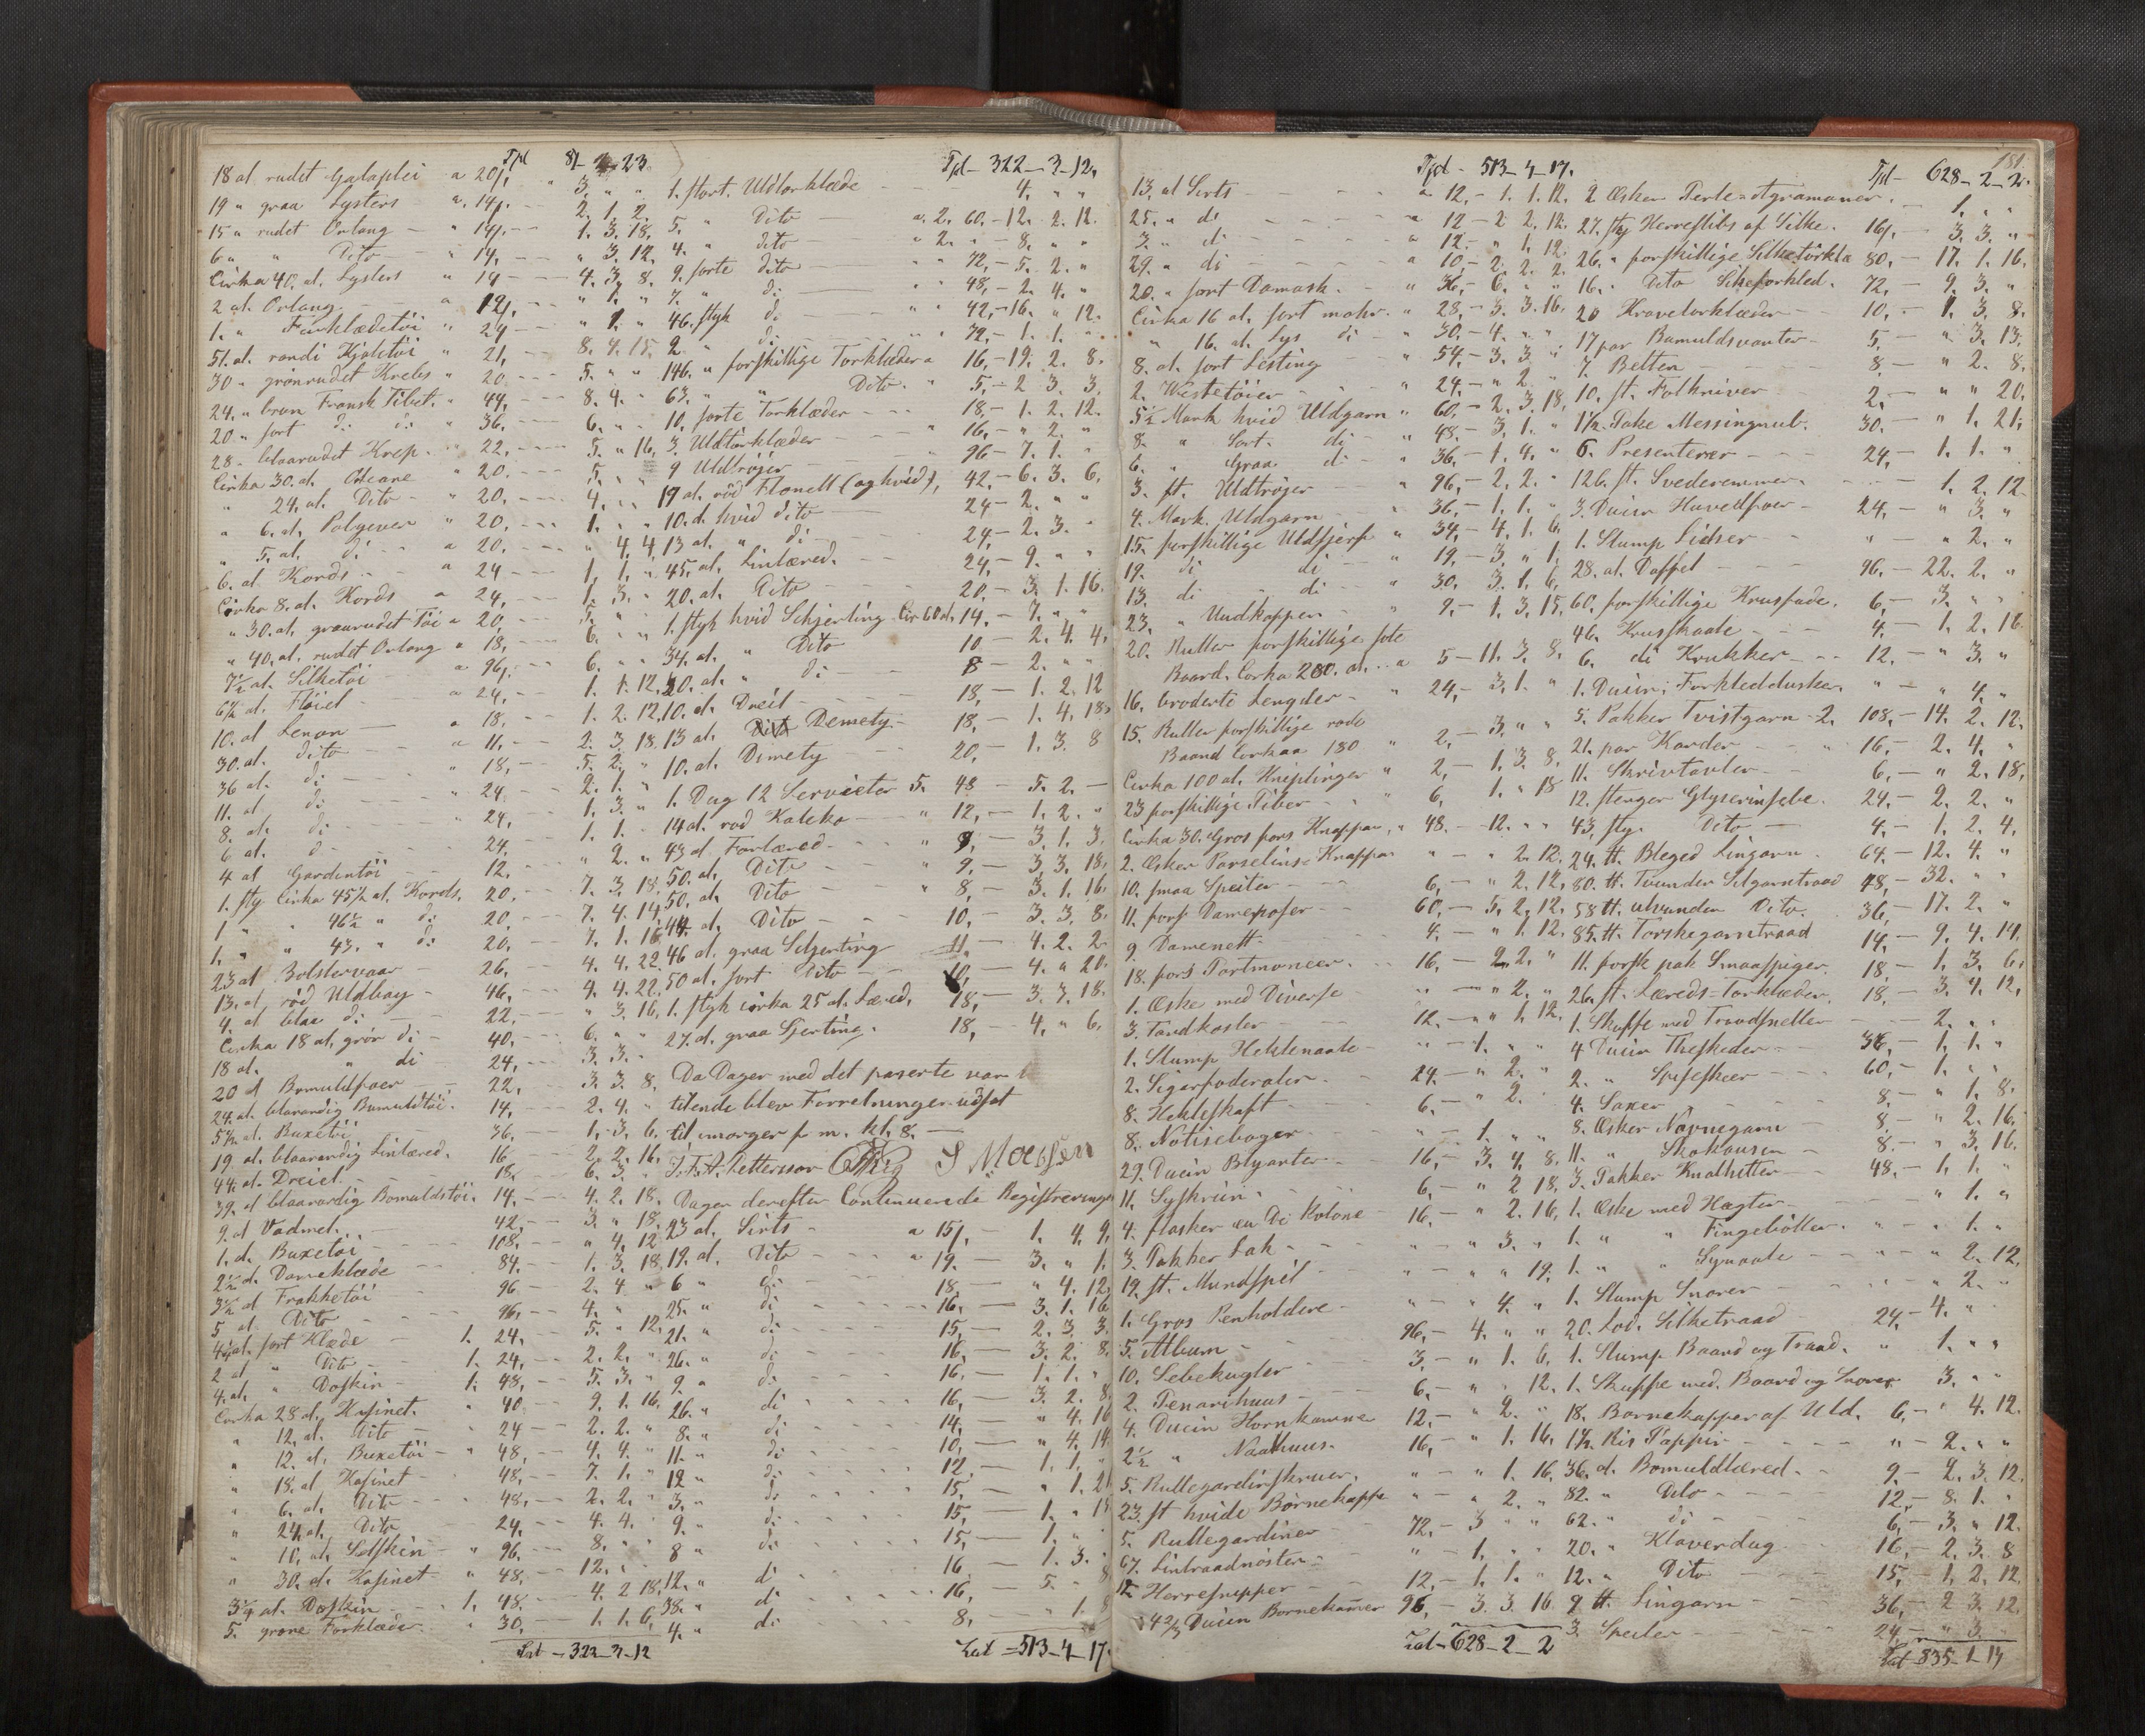 Tpd 81-4-23
18 al rudet Galaplei a 20/. " 3. " "
19 " graa Lysters a. 14/. -- 2. 1. 2.
15 " rudet Orlang - " 14/. -- 1. 3. 18.
6 " " Dito - " 14. -- " 3. 12.
Cirka 40. al. Lysters " 14 -- 4. 3. 8.
2 al. Orlang - - a 12/. -- " 1. "
1. " Forklædetöi " 24 -- " 1. "
51. al. randi Kjoletöi " 21, -- 8. 4. 15.
30 " grönrudet Krebs " 20 -- 5. " "
24. " brun Fransk Tibet. " 44, -- 8. 4. "
20 " sort di di " 36. -- 6. " "
28 - blaarudet Krep. " 22, -- 5. " 16.
Cirka 30. al. Orleans " 20. -- 5. " "
" 24. al. Dito - " 20. -- 4. " "
" 6. al. Polgever " 20. -- 1. " "
" 5. al. di - a 20. -- " 4. 4.
6. al. Kords - a 24 -- 1. 1. "
Cirka 8. al. Kords a 24, -- 1. 3. "
" 30. al. graarudet Töi a 20, -- 5. " "
" 40. al. rudet Orlang a 18, -- 6. " "
7½ al. Silketöi a 96, -- 6. " "
6½ al. Flöiel - a 24, -- 1. 1. 12.
10. al Lenon - a 18, -- 1. 2. 12.
30. al. Dito - a 11, -- 2. 3. 18.
36 al. di - " 18, -- 5. 2. "
11. al di - " 24. -- 2. 1. "
8. al. di " 24, -- 1. 3. "
6 al. d - 24, -- 1. 1. "
4 al Gardintöi - 12. -- " 2. "
1. sty Cirka 45½ al. Kords. 20. -- 7. 3. 18.
1 " " 46½ " di 20. -- 7. 4. 14.
1. " " 43. " di 20. -- 7. 1. 16.
23 al Bolstervaar - 26, -- 4. 4. 22.
13. al. röd Uldbay - 46, -- 4. 4. 22.
4. al blaa di - 22, -- " 3. 16.
Cirka 18 al. grön di - 40, -- 6. " "
18 al. " di 24, -- 3. 3. "
20 al Bomuldsfoer - 22, -- 3. 3. 8.
24. al. blaarandig Bumuldtöi. 14, -- 2. 4. "
5½ al. Buxetöi 36, -- 1. 3. 6.
19 al. blaarandig Linlæred. 16 -- 2. 2. 16.
44. al. Dreiel - 18. -- 6. 3. "
39. al blaarandig Bomuldstöi. 14, -- 4. 2. 18.
9. al Vadmel. 42, -- 3. " 18.
1. al. Buxetöi 108, -- " 4. 12
2½ al. Dameklæde 84. -- 1. 3. 18.
3½ al Frakketöi 96 -- 2. 4 "
5 al. Dito - 96, -- 4. " "
4½ al. sort Klæde 1. 24, -- 5. " 12.
2 al " Dito - 1. 24, -- 2. 2. "
4. al. " Doskin - 1. 48, -- 5. 3. "
Cirka 28 al. Kasinet. " 40, -- 9. 1. 16.
" 12, al. Dito - " 24 -- 2. 2. "
" 12. al. Buxetöi - " 48, -- 4. 4. "
" 18. al Kasinet - 48, -- 7. 1. "
" 6. al. Dito - 48, -- 2. 2. "
" 24. al. Dito 24, -- 4. 4. "
" 10, al. Selskin - " 96, -- 8. " "
" 30. al. Kasinet - " 48, -- 12. " "
3¼ al. Doskin 1. 48. -- 4. 2 18.
5. grove Forklæder. " 30, -- 1. 1. 6.
Lat - 322-3-12
Tpd - 322-3-12.
1. stort. Uldtorklæde - 4. " "
5. " Dito - a. 2. 60. - 12. 2. 12.
4. " dito " 2. " - 8. " "
9. sorte dito " 72, - 5. 2. "
7. " di - " 48, - 2. 4. "
46. styk di - " 42, - 16. " 12.
2 " di - " 72, - 1. 1. "
146. " forskillige Torklæder a 16, - 19. 2. 8.
63. " " Dito. " 5, - 2 3. 3.
10. sorte Torklæder - 18, - 1. 2. 12.
3. Uldtörklæder " 16, - " 2. "
9 Uldtröjer - " 96 - 7. 1. "
19 al. röd Flonell (og hvid), 42, - 6. 3. 6.
10. al. hvid dito - 24 - 2. " "
13 al. " di - 24, - 2. 3. "
45. al. Linlæred. - 24, - 9. " "
20. al. Dito - 20. - 3. 1. 16.
1. styk hvid Schjerting Cir 60 al. 14. - 7. " "
34. al. " Dito 10 - 2. 4 4.
20. al. " di - 8 - 2. " "
10. al. Dreil - 18, - 1. 2. 12
13 al. Demety - 18, - 1. 4. 18.
10. al. Dimety 20, - 1. 3. 8
1. Dug 12 Servieter 5. 48 - 5. 2. -
14 al. rod Kaleko " 12, - 1. 2. "
43 al. Forlæred - " 9, - 3. 1. 3.
50. al. Dito - " 9, - 3. 3. 18.
50, al. Dito " 8, - 3. 1. 16.
44. al. Dito - 10, - 3. 3. 8.
46 al. graa Schjerting 11. - 4. 2. 2.
50 al. sort Dito - 10, - 4. " 20.
1. styk cirka 25 al. Læred, 18, - 3. 3. 18.
27. al. graa Sjerting. 18, - 4. " 6.
Da Dagen med det paserte var
tilende blev Forretningen udsat
til imorgen f m. kl. 8. -
J. F. A. Pettersson S Moelssen
Dagen derefter Continuerede Registreringen
23 al. Sirts a 15/. - 1. 4. 9.
19. al. Dito - a 19. - 3. " 1.
6 " di - 18. - " 4. 12.
25. " di - 16, - 3. 1. 16
21. " di - 15, - 2. 3. 3.
26. " di - 16. - 3. 2. 8.
9. " di - 16. - 1. 1. "
26. " di 16, - 3. 2. 8.
8. " di 14, - " 4. 16
11. " di 10, - " 4. 14.
12 " di 12, - 1. 1. "
3. " di 15, - " 1. 21
9. " di 15, - 1. " 15
8 " di 15, - 1. " "
12. " di 16 - 1. 3. "
38. " di 16, - 5. " 8
4. " di 8, - " 1. 8
Lat - 513-4-17.
181.
Tpd - 513-4-17.
13. al Sirts a 12, - 1. 1. 12.
25. " di a 12 - 2 2. 12.
3. " di " 12 - " 1. 12.
29. " di a 10, - 2. 2. 2.
20. " sort Damask. - " 36, - 6. " "
Cirka 16 al. sort mohr. " 28, - 3. 3. 16.
" 16. al. Lys di " 30, - 4. " "
8. al. sort Lesting " 54, - 3. 3 "
2. Westetöier - " 24, - " 2. "
5½ Mark hvid Uldgarn " 60, - 2. 3. 18.
8. " Sort. di - " 48. - 3. 1. "
6. " Graa di - " 36, - 1. 4. "
3. st. Uldtröjer - " 96, - 2. 2. "
4. Mark. Uldgarn - " 36, - 1. 1. "
15. forskillige Uldskjerf " 34, - 4. 1. 6.
19. di di " 19, - 3. " 1.
13. di di - " 30. 3. 1. 6.
23. " Uudkopper - " 9. - 1. 3. 15.
20. Ruller forskillige sote
Baand. Corka 200. al. a 5 - 11. 3. 8.
16. broderte Lengder - " 24, - 3. 1. "
15. Ruller forskillige rode
Baand Corkaa 180 " 2, - 3. " "
Cirka 100 al. Kniplinger " 2, - 1. 3. 8.
23 forskillige Piber - " 6, 1. " 18
Cirka 30. Gros fors Knapper, " 48. - 12. " "
2. Æsker Porselins-Knapper " - " 2. 12.
10. smaa Speiler - 6, - " 2. 12.
11. forsk Dameposer - 60, - 5. 2. 12.
9 Damenett - 4. - " 1. 12.
18. fors Portmoneer. 16, - 2. 2. "
1. Æske med Diverse " - " 2. "
3. Tandkoster - 12. - " 1. 12.
1. Slump Heklenaale - " - 1. " "
2. Sigarfoderaler. 24. - " 2. "
8. Hekleskaft - 6, - " 2. "
8. Notiseboger - " - 1. " "
29. Ducin Blyanter - 16, - 3. 4. 8.
11. Syskrin - 6, - " 2 18.
4. flasker au De Kolone - 16, - " 2. 16.
3. Pakker Lak - " - " 3. "
19. st. Mundspil - " - " " 19.
1. Gros Penholdere - " - " 4. "
5. Album - 96, - 4. " "
10. Sebekugler 3. - " 1. 6.
2. Penarihuus - 6, - " " 12.
4. Ducin Hornkamme 12, - " 2. "
2½ " Naalhuus - 16, - " 1. 16.
5. Rullegardinskruer. " - " 1. 16.
23. st hvide Börnekapper " - " 2. "
5. Rullegardiner - 72, - 3 " "
67. Lintraadnöster - " - 1. " "
12 Herresnipper - 12, - 1. 1. "
4 2/3 Ducin Bornekammer 96, - 3. 3. 16
Lat - 628-2-2
Tpd - 628-2-2.
2 Æsker Perle-Agramaner. - 1. " "
27. sty Herreslibs af Silke. 16/. - 3. 3. "
26. " forskillige Silketörkla 80, - 17. 1. 16.
16. " Dito Silkeforkled. 72, - 9. 3. "
20 Kravetorklæder - 10, - 1. 3. 8.
17 par Bomuldsvanter - 5. - " 3. 13.
7. Belten - 8, - " 2. 8.
10. st. Folkniver 2, - " " 20.
1½ Pake Messingnub. 30. - " 1. 21.
6. Presenterer - 24, - 1. 1. "
126. st. Svederemmer - 1. 2. 12
3. Ducin Huvedfoer - 24, - " 3. "
1. Slump Lidser - " - " 2. "
28. al. Daffel - 96. - 22. 2. "
60. forskillige Krusfade. 6, - 3. " "
46. Krusskaale - 4. - 1. 2. 16.
6. di Krukker - 12, - " 3. "
1. Ducin; Forkleddusker. " - " 4. "
5. Pakker Tvistgarn - 2. 108, - 14. 2. 12.
21. par Karder - 16, - 2. 4. "
11. Skrivtavler - 6, - " 2. 18.
12. stenger Glyserinsebe. 24. - 2. 2. "
43. sty. Dito - 4, - 1. 2. 4.
24. ℔. Bleged Lingarn. 64. - 12. 4. "
80. ℔. Tvunder Selgarntraad 48, - 32. " "
58 ℔. utvunden Dito. 36, - 17. 2. "
85. ℔. Torskegarntraad 14, - 9. 4. 14.
11. forsk pak Smaaspiger. 18. - 1. 3. 6.
26. st. Læreds-Torklæder. 18, - 3. 4. 12.
1. Skuffe med Traadsneller - 2. " "
4. Ducin Theskeder - 36, - 1. 1. "
2. " Spiseskeer 60, - 1. " "
4. Saxer - 8, - " 1. 8.
8. Æsker Navnegarn 8 - " 2. 16.
11. " Skokousen - 8. - " 3. 16.
3. Pakker Knalhetter - 48. - 1. 1. "
1. Æske med Hægter - " 1. "
1. " " Fingeböller - " - " 1. "
1. " " Synaale - " - " 2. 12.
1. Slump Snorer - " 2. "
20. Lod. Silketraad 24, - 4. "
1. Slump Baand og Traad. " 1. " "
1. Skuffe med. Baand og Snorer 3. " "
18. Bornekapper af Uld. 6, - " 4. 12.
1½. Ris Pappir - " - 2. " "
36. al. Bomuldlæred. - 9. - 2. 3. 12.
82. " Dito - 12, - 8. 1. "
62. " di - 6, - 3. " 12.
20. " Klaverdug 16, - 2. 3. 8
12. " Dito - 15, - 1, 2. 12.
9 ℔. Lingarn - 36, - 2 3. 12.
3. Speiler - 24, - " 3. "
Lat - 835-1-14